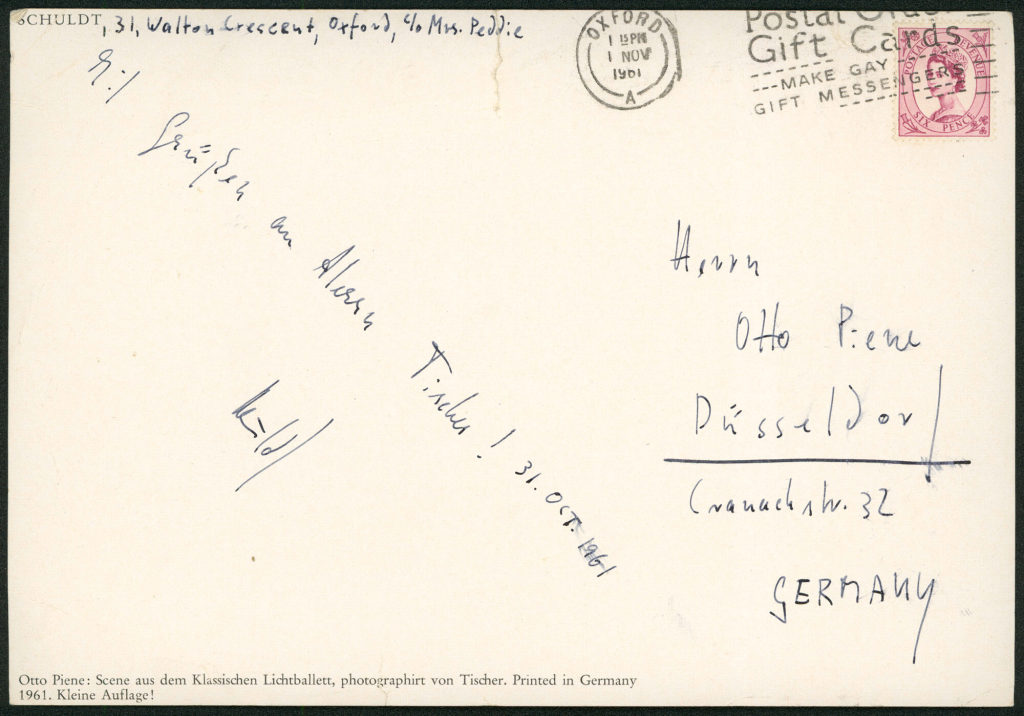 SCHULDT, 31, Walton Crescent, Oxford, c/o Mrs. Peddie
OXFORD
1 15 PM
1 NOV
1961
A
Postal Order
Gift Cards
MAKE GAY
GIFT MESSENGERS
POSTAGE REVENUE
SIX PENCE
Grüßen an Herrn Tischer! 31. OCT. 1961
Herrn
Otto Piene
Düsseldorf
Cranachstr. 32
GERMANY
Otto Piene: Scene aus dem Klassischen Lichtballett, photographirt von Tischer. Printed in Germany
1961. Kleine Auflage!